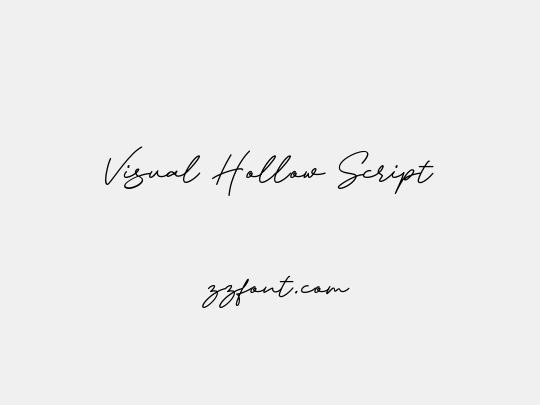 Visual Hollow Script
zzfont.com